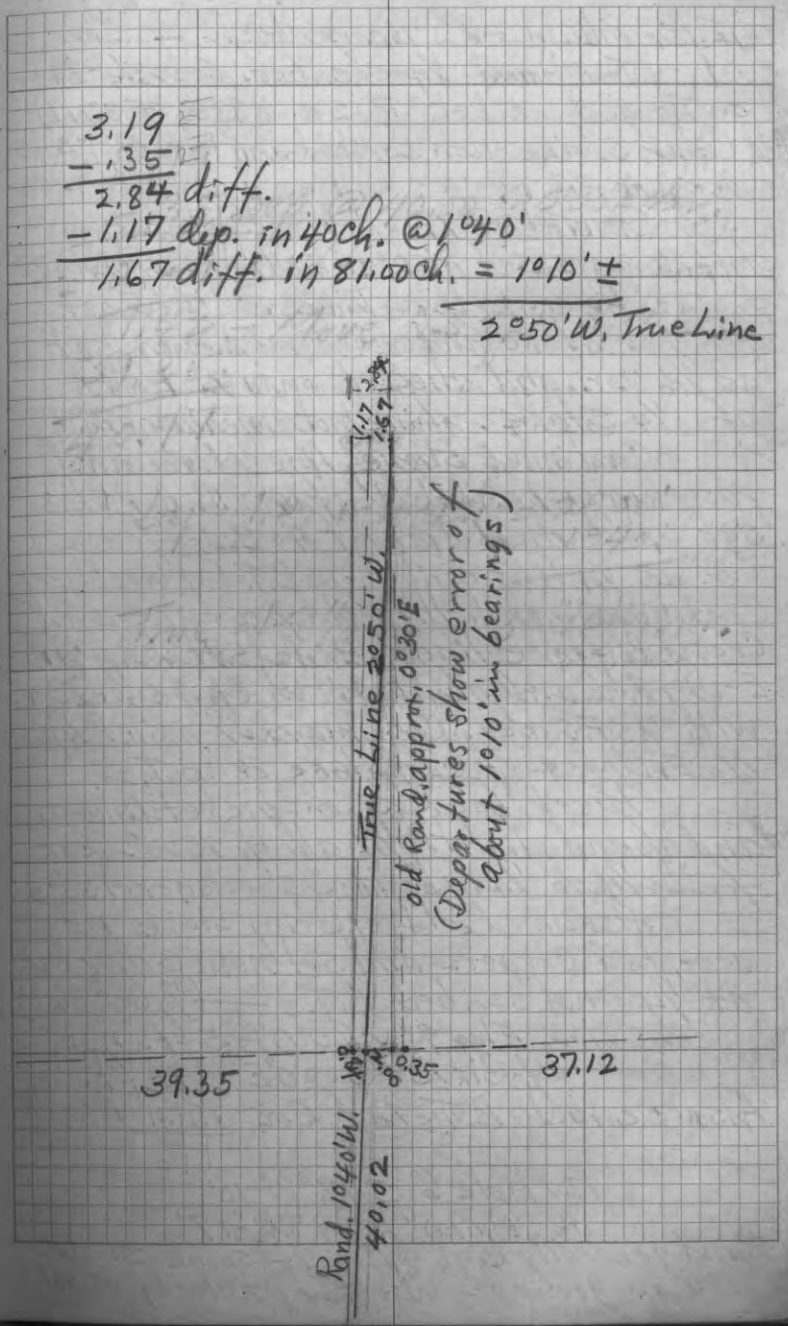 3.19
- .35
2.84 diff.
-1.17 dep. in 40ch. @ 1°40'
1.67 diff. in 81.00ch. = 1°10' ±
2°50'W. True Line
1.17
1.67
2.84
True Line 2°50' W.
old Rand. approx. 0°30'E
(Departures show error of
about 1°10' in bearings)
39.35
0.35
37.12
Rand. 1°40'W.
40.02